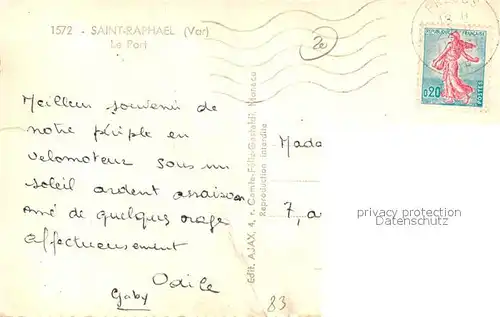 1572 - SAINT-RAPHAEL (Var)
Le Port
2e
REPUBLIQUE FRANÇAISE
0,20
POSTES
Meilleur souvenir de
notre périple en
velomoteur sous un
soleil ardent assaison
né de quelques orage
affectueusement
Odile
Gaby
Edit. AJAX, 4, r. Comte-Félix-Gastaldi, Monaco
Reproduction interdite
Mada
7, a
privacy protection
Datenschutz
83